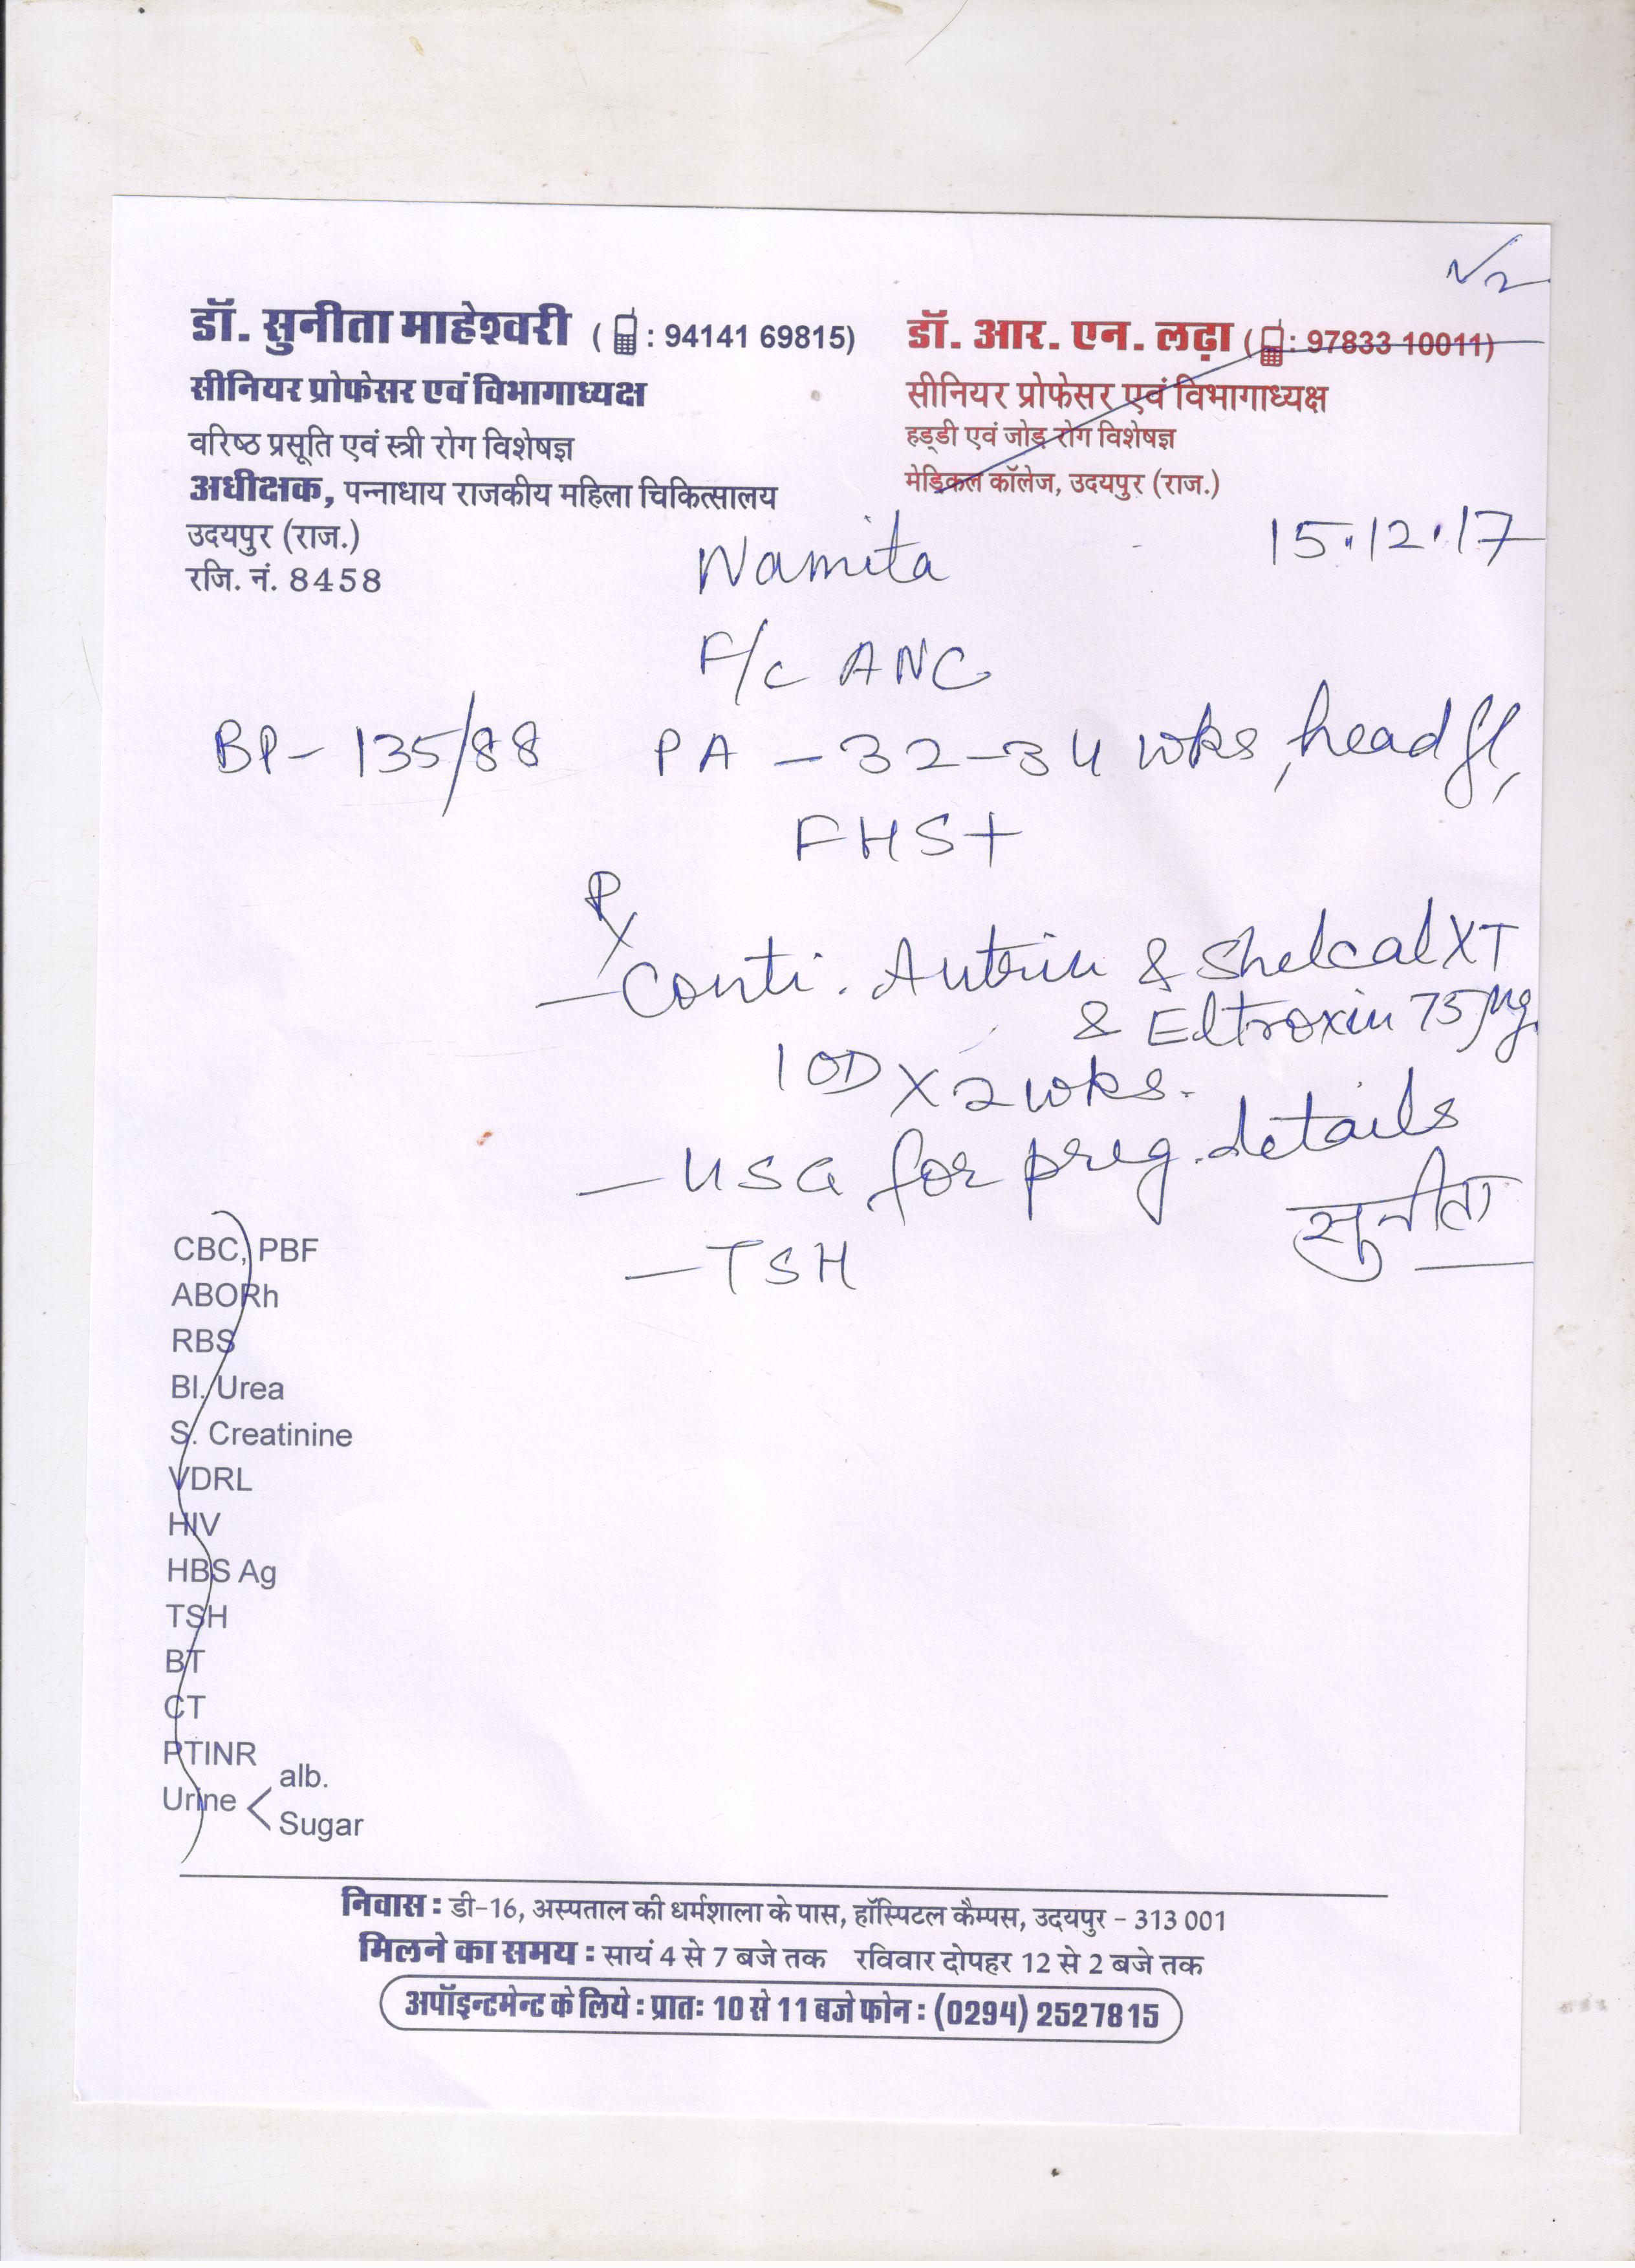 डॉ. सुनीता माहेश्वरी ( : 94141 69815)
सीनियर प्रोफेसर एवं विभागाध्यक्ष
वरिष्ठ प्रसूति एवं स्त्री रोग विशेषज्ञ
अधीक्षक, पन्नाधाय राजकीय महिला चिकित्सालय
उदयपुर (राज.)
रजि. नं. 8458
डॉ. आर. एन. लढ़ा ( : 97833 10011)
सीनियर प्रोफेसर एवं विभागाध्यक्ष
हड्डी एवं जोड़ रोग विशेषज्ञ
मेडिकल कॉलेज, उदयपुर (राज.)
15.12.17
Namita
F/c ANC
BP- 135/88 PA - 32-34 wks, head fl,
FHS+
Rx
- Conti. Autrin & Shelcal XT
& Eltroxin 75 µg
1 OD x 2 wks.
- USG for preg. details
सुनीता
- TSH
CBC, PBF
ABORh
RBS
Bl. Urea
S. Creatinine
VDRL
HIV
HBS Ag
TSH
BT
CT
PTINR
Urine < alb.
Sugar
निवास : डी-16, अस्पताल की धर्मशाला के पास, हॉस्पिटल कैम्पस, उदयपुर - 313 001
मिलने का समय : सायं 4 से 7 बजे तक रविवार दोपहर 12 से 2 बजे तक
अपॉइन्टमेन्ट के लिये : प्रातः 10 से 11 बजे फोन : (0294) 2527815